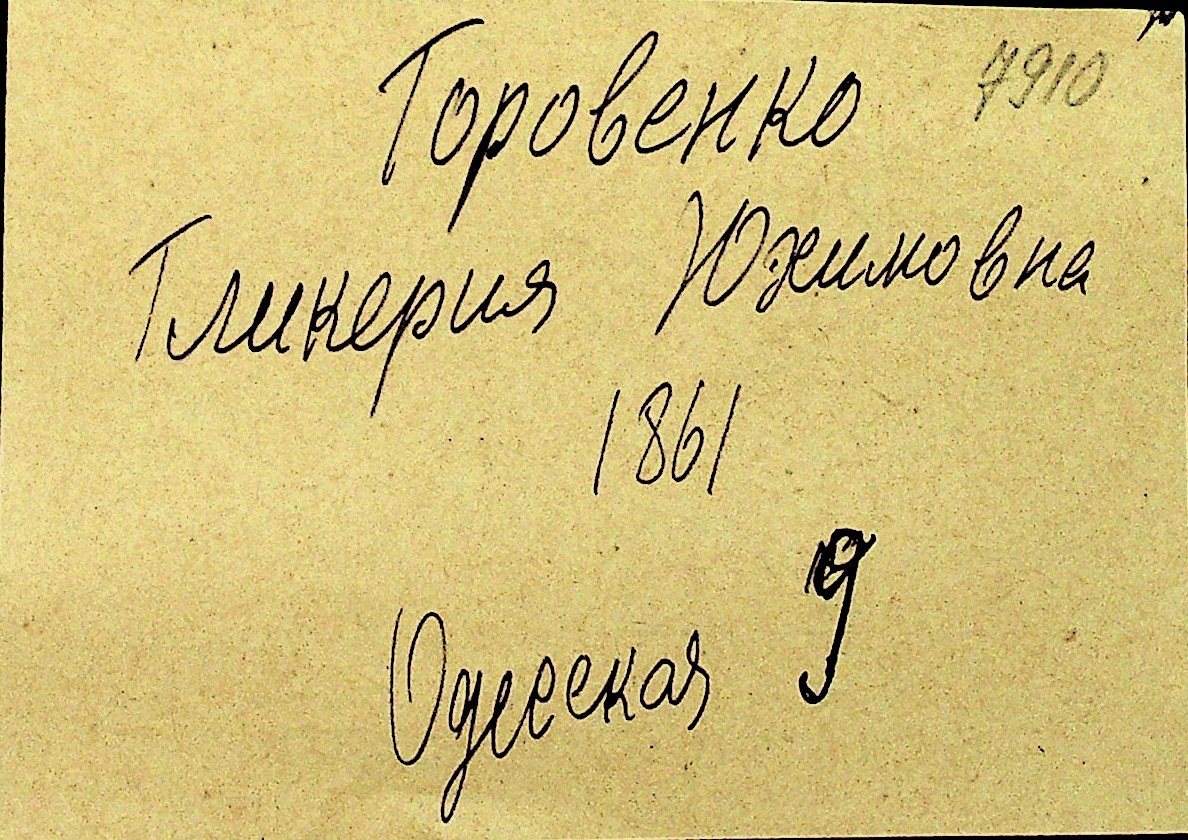 Горовенко 7910
Гликерия Юхимовна
1861
Одесская 9